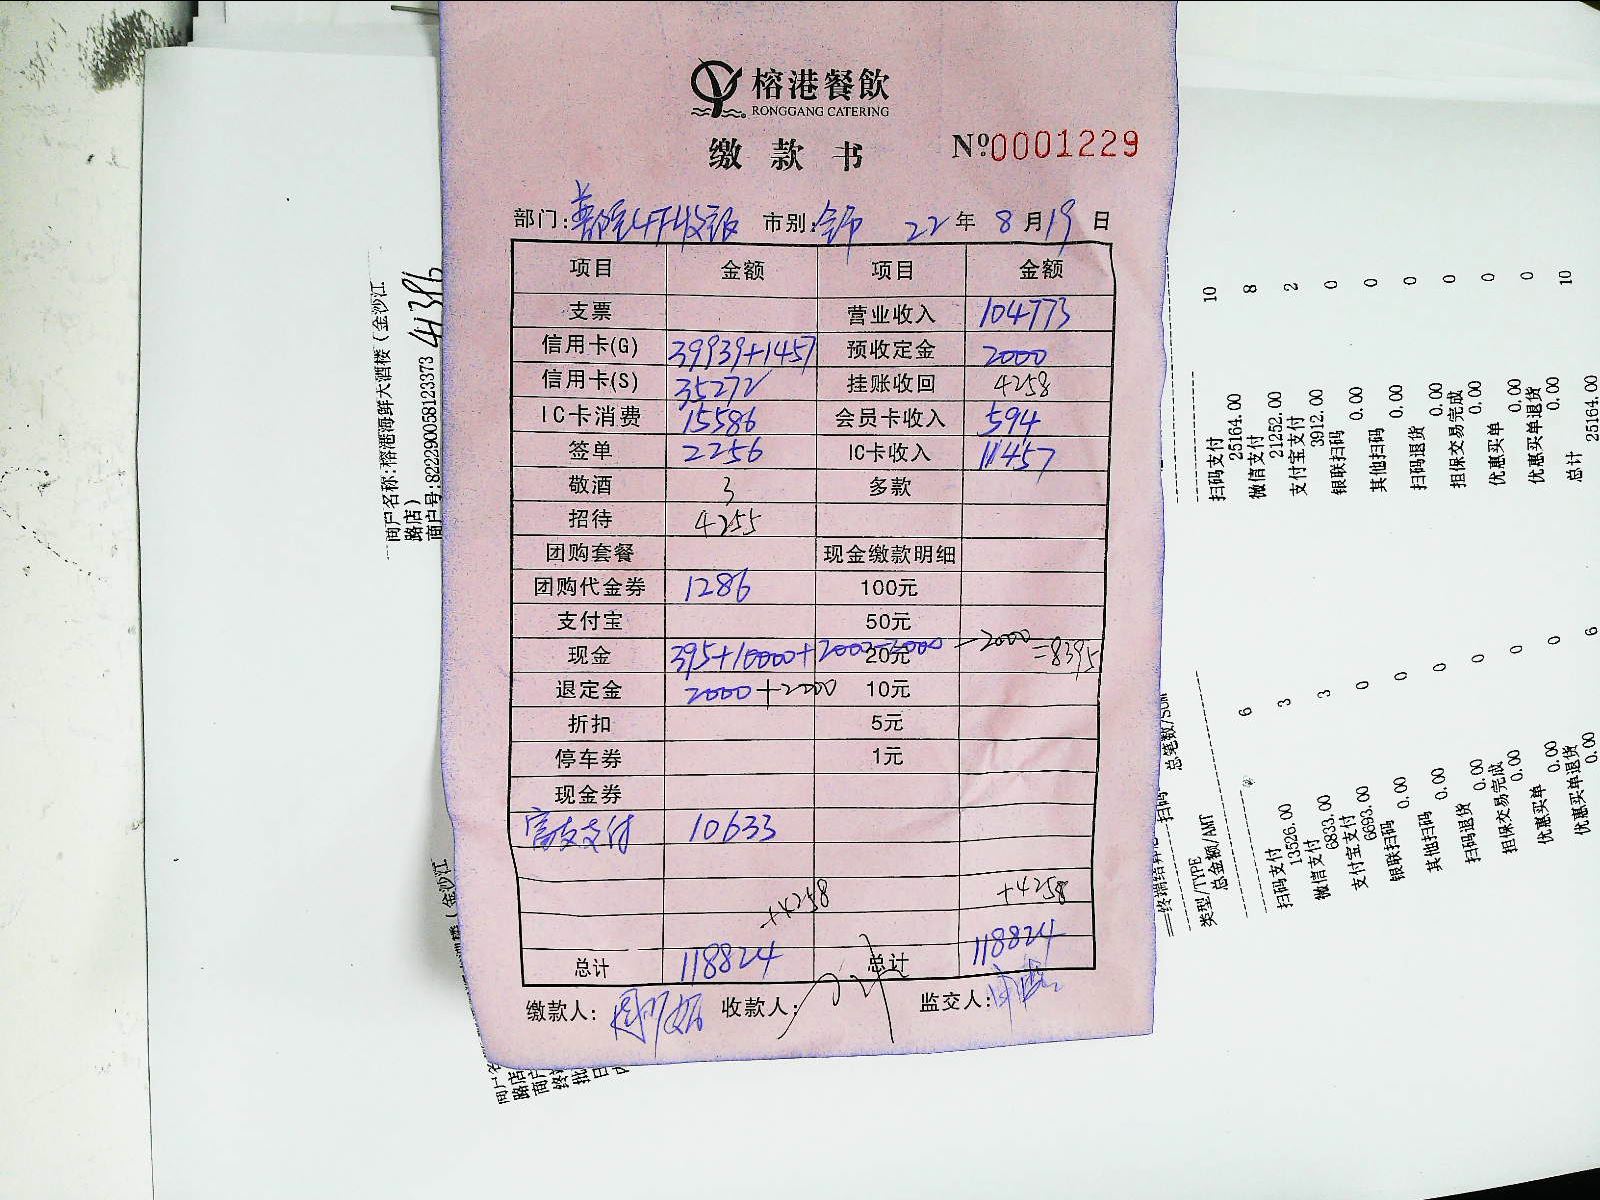 榕港餐飲
RONGGANG CATERING
缴款书
Nº0001229
部门: 市别: 22年8月19日
项目 金额 项目 金额
支票 营业收入 104773
信用卡(G) 39939+1457 预收定金 2000
信用卡(S) 35272 挂账收回 4258
IC卡消费 15586 会员卡收入 594
签单 2256 IC卡收入 11457
敬酒 3 多款
招待 4255
团购套餐 现金缴款明细
团购代金券 1286 100元
支付宝 50元
现金 395+10000+2000-2000-2000=8395 20元
退定金 2000+2000 10元
折扣 5元
停车券 1元
现金券
支付 10633
+4258 +4258
总计 118824 总计 118824
缴款人: 收款人: 监交人:
商户名称:榕港海鲜大酒楼(金沙江
路店)
商户号:822290058123373
41396
扫码支付 10
25164.00
微信支付 8
21252.00
支付宝支付 2
3912.00
银联扫码 0
0.00
其他扫码 0
0.00
扫码退货 0
0.00
担保交易完成 0
0.00
优惠买单 0
0.00
优惠买单退货 0
0.00
总计 10
25164.00
类型/TYPE 总笔数/SUM
总金额/AMT
扫码支付 6
13526.00
微信支付 3
6833.00
支付宝支付 3
6693.00
银联扫码 0
0.00
其他扫码 0
0.00
扫码退货 0
0.00
担保交易完成 0
0.00
优惠买单 0
0.00
优惠买单退货 0
0.00
6
(金沙江